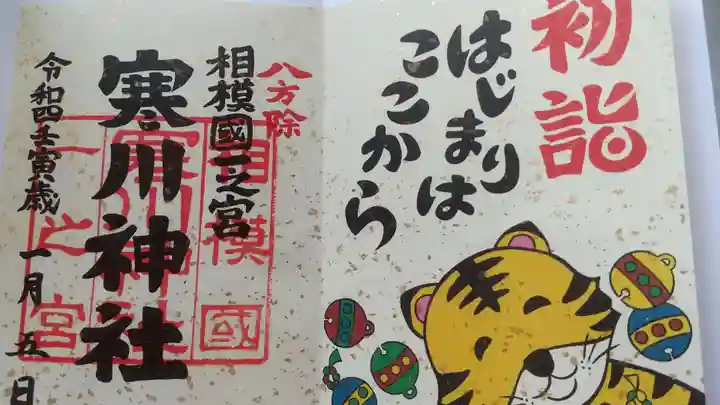 初詣
はじまりは
ここから
八方除
相模國一之宮
寒川神社
令和四壬寅歳 一月五日
相模國
寒川神社
一之宮